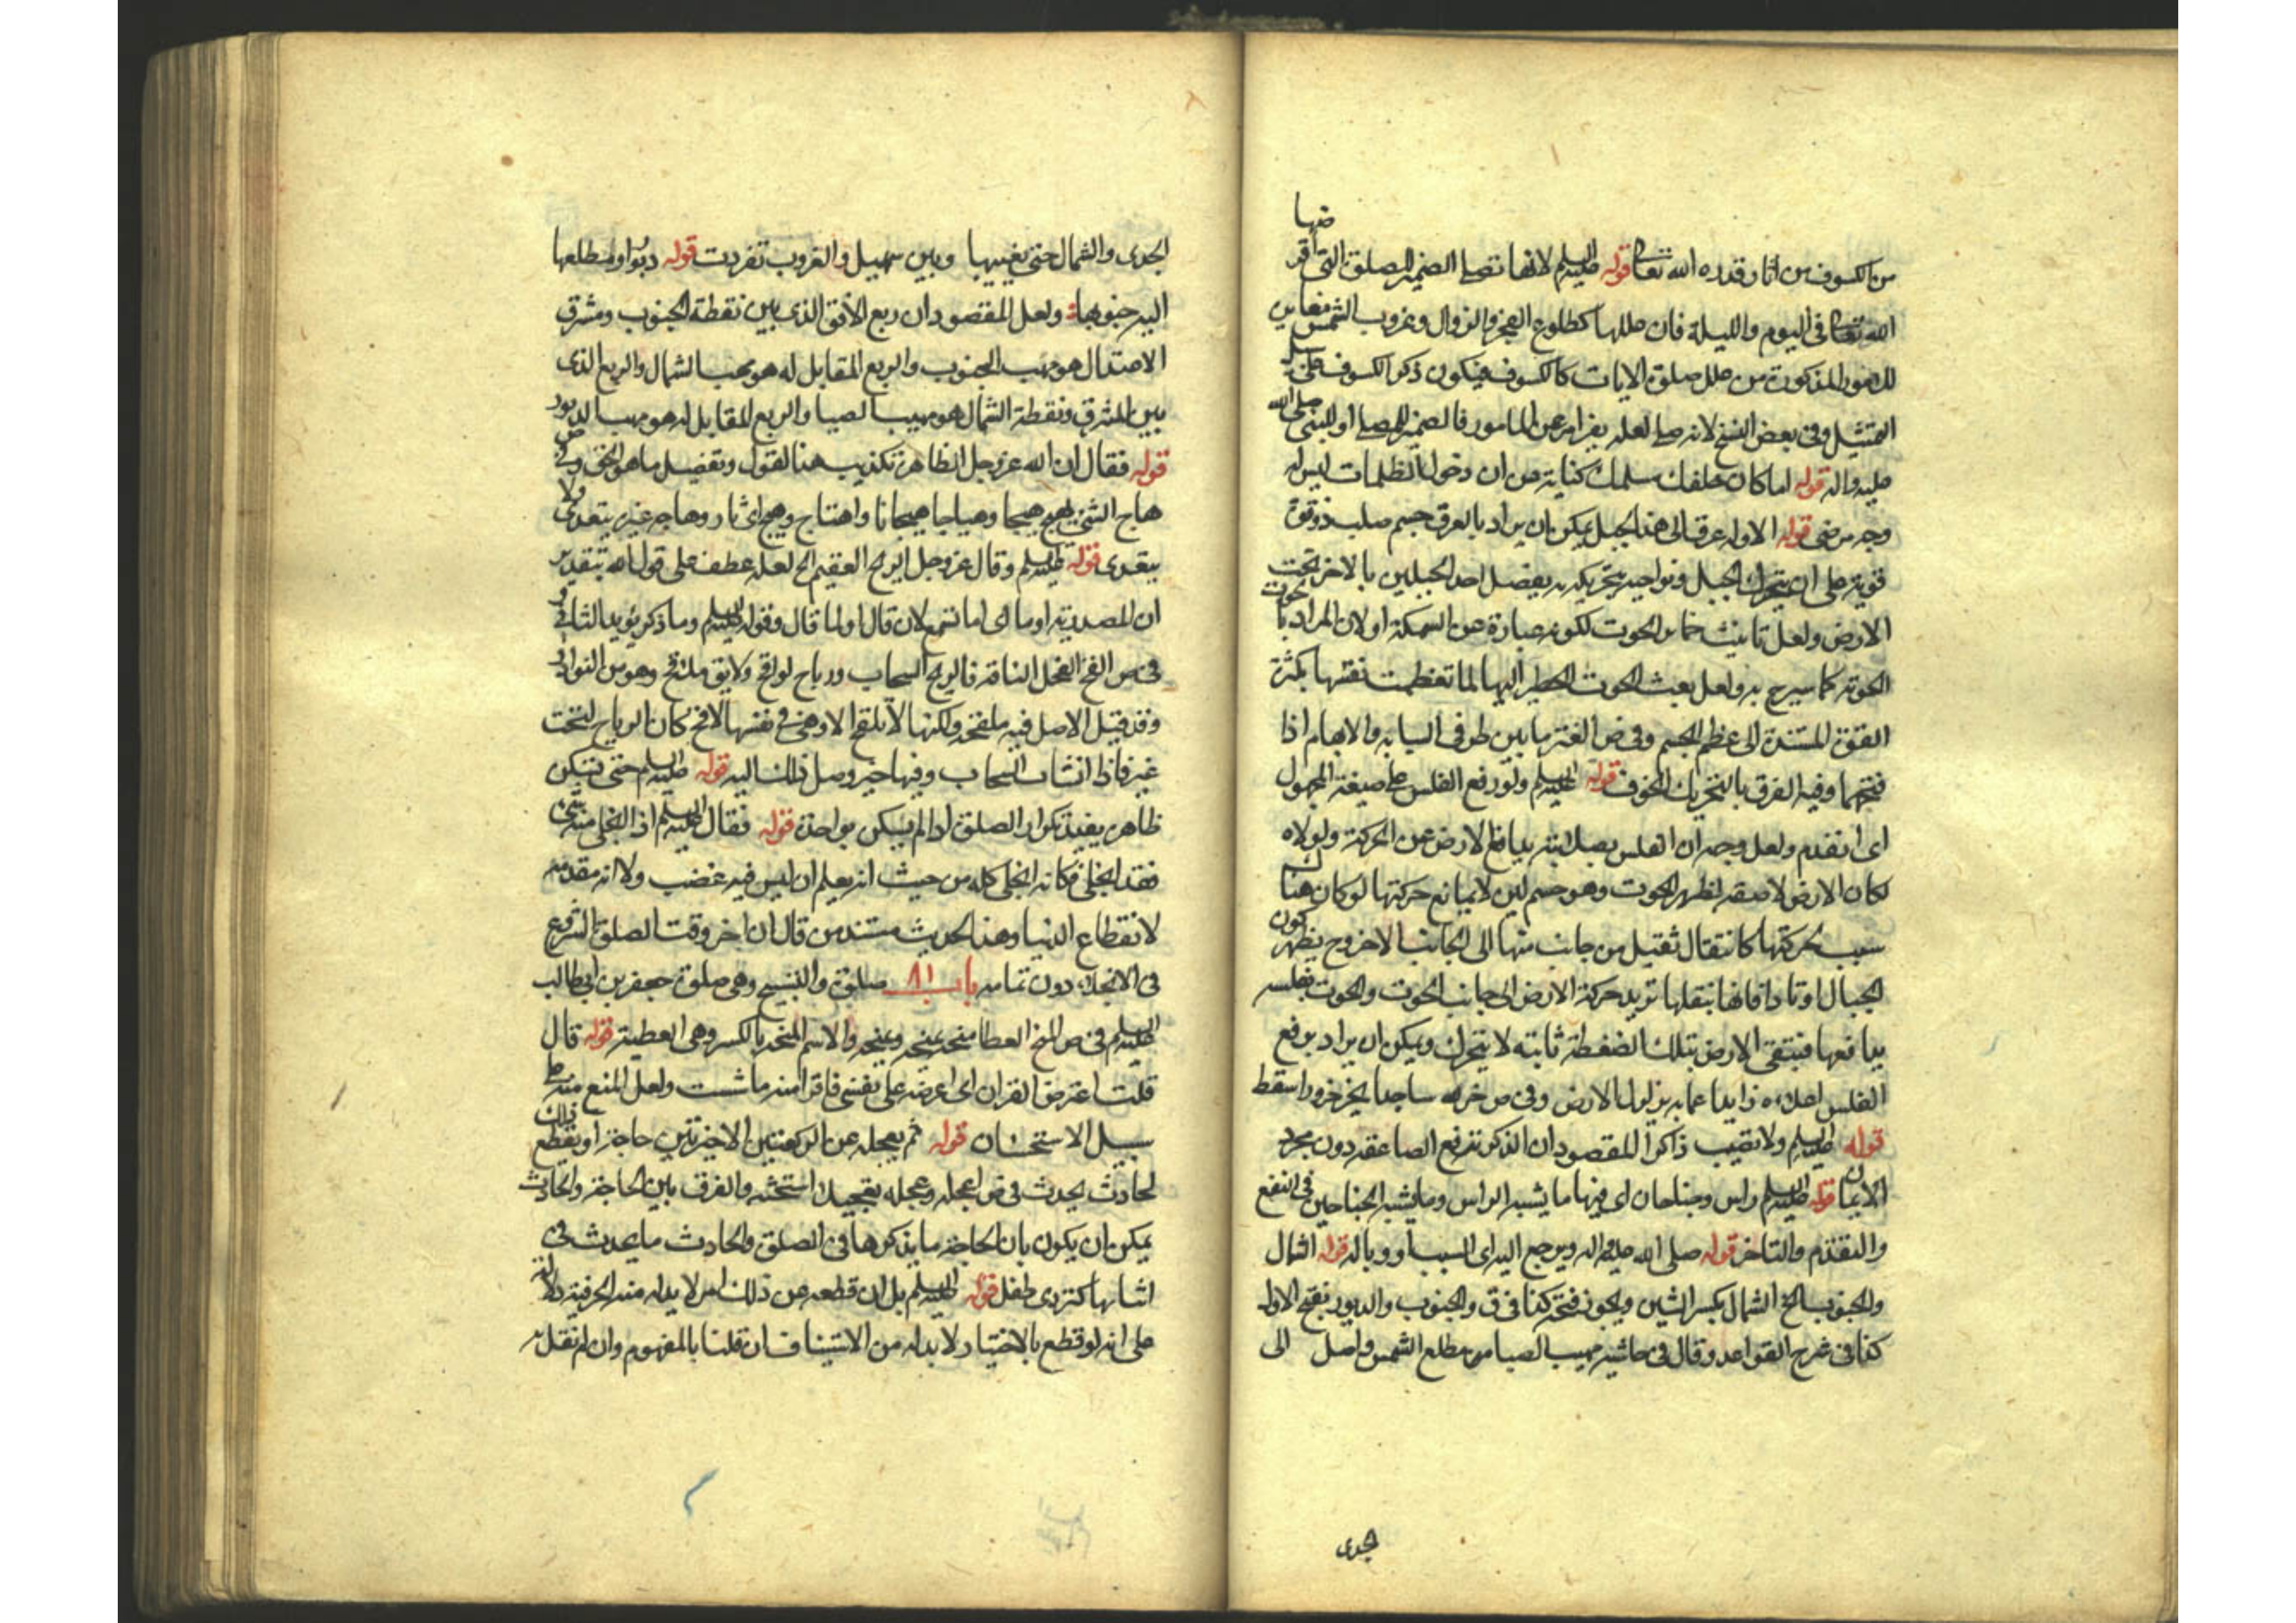 من الكسوف من اثار قدره الله تعالى قوله عليه السلم لانها تصلى الضمير للصلوة التي افترضها
الله تعالى في اليوم والليلة فان عللها كطلوع الفجر والزوال وغروب الشمس مغاير
للامور المذكورة من علل صلوة الايات كالكسوف فيكون ذكر الكسوف على سبيل
التمثيل وفى بعض النسخ لانه صلى لعله بغرامر عن المامور فالضمير للمصلى او للنبي صلى الله
عليه واله قوله اما كان خلفك مسلمك كناية عن ان دخول الظلمات ليس له
وجه مرضى قوله الا وله عرق الى هذا الجبل يمكن ان يراد بالعرق جسم صلب ذو قوة
قوية على ان يتحرك الجبل ونواحيه بتحريكه به يفصل احد الجبلين بالاخر تحت
الارض ولعل تانيث ضماير الحوت لكونه عبارة عن السمكة او لان المراد بالحوت
الحوته كما سيرح به ولعل بعث الحوت الصغير اليها لما تعظمت نفسها بكثرة
القوة المستندة الى عظم الجسم وفى ص الفتر ما بين طرفى السبابه والابهام اذا
فتحهما وفيه الفرق بالتحريك الخوف قوله عليه السلم ولو رفع الفلس على صيغة المجهول
اى انعدم ولعل وجه ان الفلس بصلابته يمانع الارض عن الحركة ولولاه
لكان الارض لاصقه لظهر الحوت وهو جسم لين لا يمانع حركتها لو كان هناك
سبب لحركتها كانتقال ثقيل من جانب منها الى الجانب الاخر وح يظهر كون
الجبال اوتادا فانها بثقلها تريد حركة الارض الى جانب الحوت والحوت بفلسه
يمانعها فتبقى الارض بتلك الضغطة ثابته لا يتحرك ويمكن ان يراد برفع
الفلس اعلاه زايدا عما به يزلزل الارض وفى ص خر لله ساجدا يخر خرورا سقط
قوله عليه السلم ولا تصيب ذاكرا المقصود ان الذكر تدفع الصاعقه دون مجرد
الايمان قوله عليه السلم راس وجناحان اى فيها ما يشبه الراس وما يشبه الجناحين فى النفع
والتقدم والتاخر قوله صلى الله عليه واله ويرجع اليه اى السبب او وباله قوله الشمال
والجنوب الخ الشمال بكسر الشين ويجوز فتحه كذا فى ق والجنوب والدبور بفتح الاول
كذا فى شرح القواعد وقال فى حاشيه مهب الصبا من مطلع الشمس واصل الى
الجدى
الجدى والشمال حتى تغيبها وبين سهيل والغروب تفردت قوله دبورا ومطلعها
اليه جنوبها ولعل المقصود ان ربع الافق الذى بين نقطة الجنوب ومشرق
الاعتدال هو مهب الجنوب والربع المقابل له هو مهب الشمال والربع الذى
بين المشرق ونقطة الشمال هو مهب الصبا والربع المقابل له هو مهب الدبور
قوله فقال ان الله عز وجل الظاهر تكذيب هذا القول وتفصيل ما هو الحق وفى ص
هاج الشئ يهيج هيجا وهياجا هيجانا واهتاج وهيج اى ثار وهاجه غيره يتعدى ولا
يتعدى قوله عليه السلم وقال عز وجل الريح العقيم الخ لعله عطف على قول الله بتقدير
ان المصدريه او ما اى اما تسمع لان قال اولما قال وقوله عليه السلم وما ذكر يؤيد الثانى و
فى ص القح الفحل الناقة فالريح السحاب ورياح لواقح ولا يق ملاقح وهو من النوادر
وقد قيل الاصل فيه ملقحه ولكنها لا تلقح الا وهى فى نفسها لاقح كان الرياح لقحت
غير فاذا انشات السحاب وفيها خير وصل ذلك اليه قوله عليه السلم حتى تسكن
ظاهره يفيد تكرار الصلوة اذا لم يسكن بواحدة قوله فقال عليه السلم اذا انجلى منه شئ
فقد انجلى فكانه انجلى كله من حيث انه يعلم ان ليس فيه غضب ولا انه مقدمه
لانقطاع الدنيا وهذا الحديث مستند من قال ان اخر وقت الصلوة الشروع
فى الانجلاء دون تمامه باب ٨١ صلوة والتسبيح وهى صلوة جعفر بن ابى طالب
عليه السلم فى ص المنح العطا منحه يمنحه ويمنحه والاسم المنحه بالكسر وهى العطية قوله قال
قلت اعترض القران اى اعرضه على نفسى فاقرا منه ما شئت ولعل المنع منه على
سبيل الاستحسان قوله ثم يعجله عن الركعتين الاخيرتين حاجة او يقطع ذلك
لحادث يحدث فى ص اعجله وعجله تعجيلا استحثه والفرق بين الحاجة والحادث
يمكن ان يكون بان الحاجة ما يذكرها فى الصلوة والحادث ما يحدث فى
اثنائها كتردى طفل قوله عليه السلم بل ان قطعه عن ذلك امر لا بد له منه الحرفية دلالة
على انه لو قطع بالاختيار لا بد له من الاستيناف ان قلنا بالمفهوم وان لم نقل به